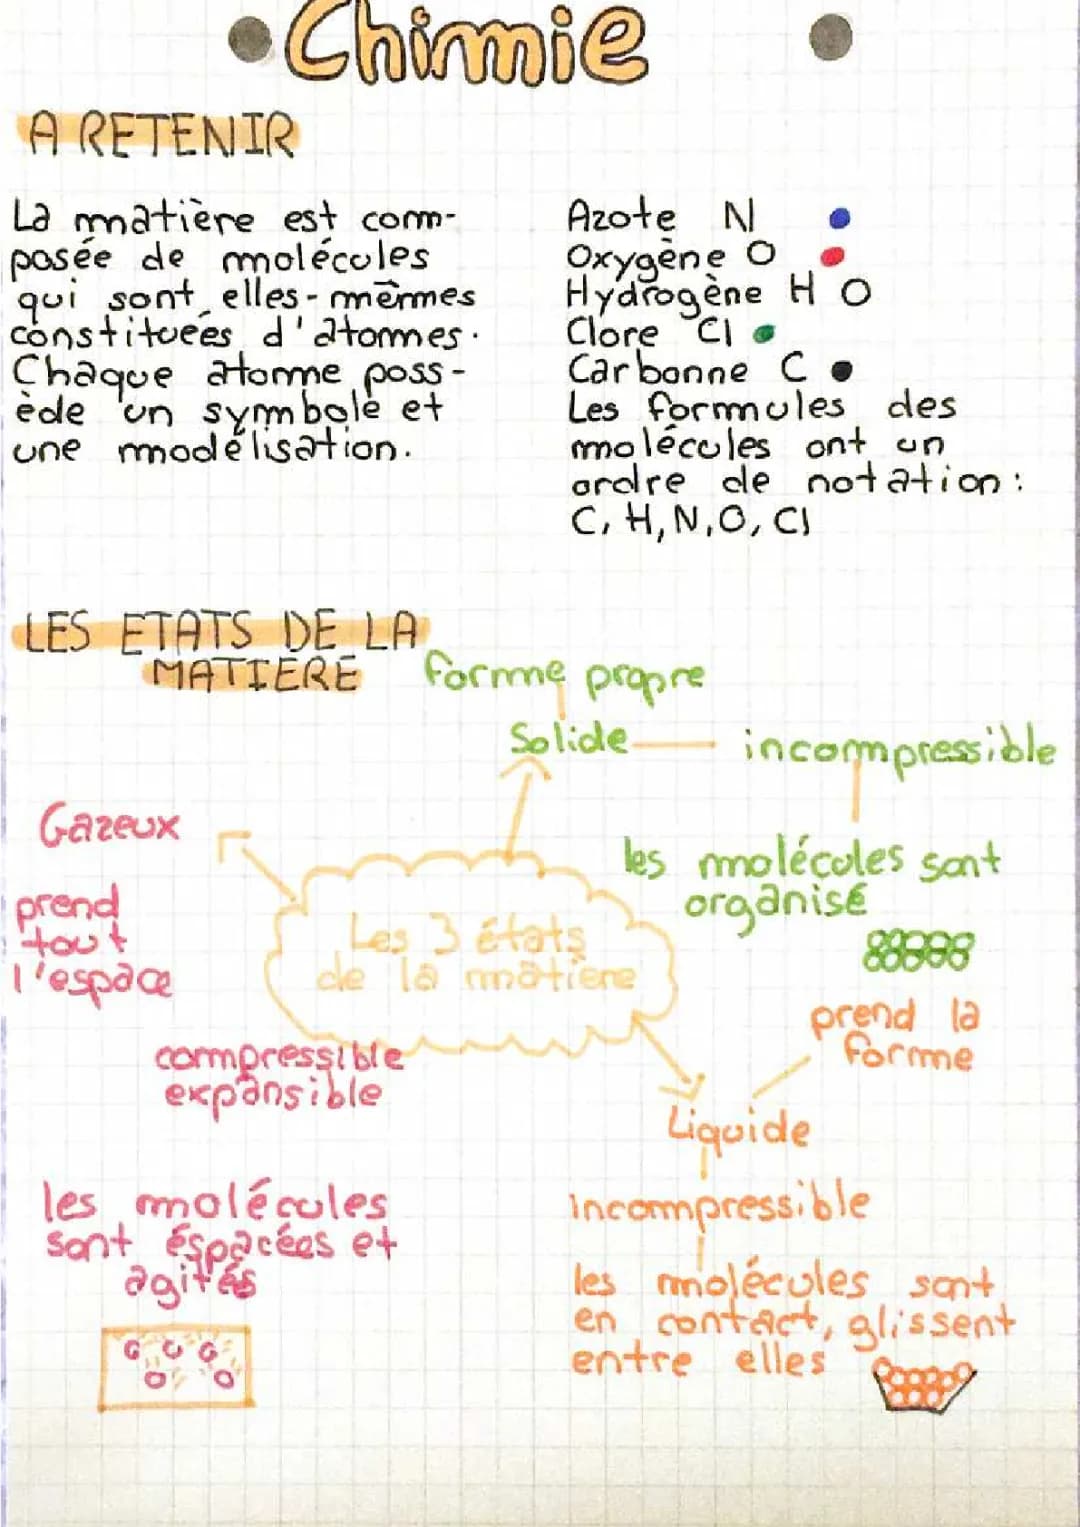 Chimie
A RETENIR
La matière est com-
posée de molécules
qui sont elles-mêmes
constituées d'atomes.
Chaque atome poss-
ède un symbole et
une modélisation.
Azote N
Oxygène O
Hydrogène H
Clore Cl
Carbonne C
Les formules des
molécules ont un
ordre de notation :
C, H, N, O, Cl
LES ETATS DE LA
MATIÈRE
forme propre
Solide
incompressible
les molécules sont
organisé
Gazeux
prend
tout
l'espace
Les 3 états
de la matière
compressible
expansible
prend la
forme
Liquide
incompressible
les molécules
sont éspacées et
agités
les molécules sont
en contact, glissent
entre elles